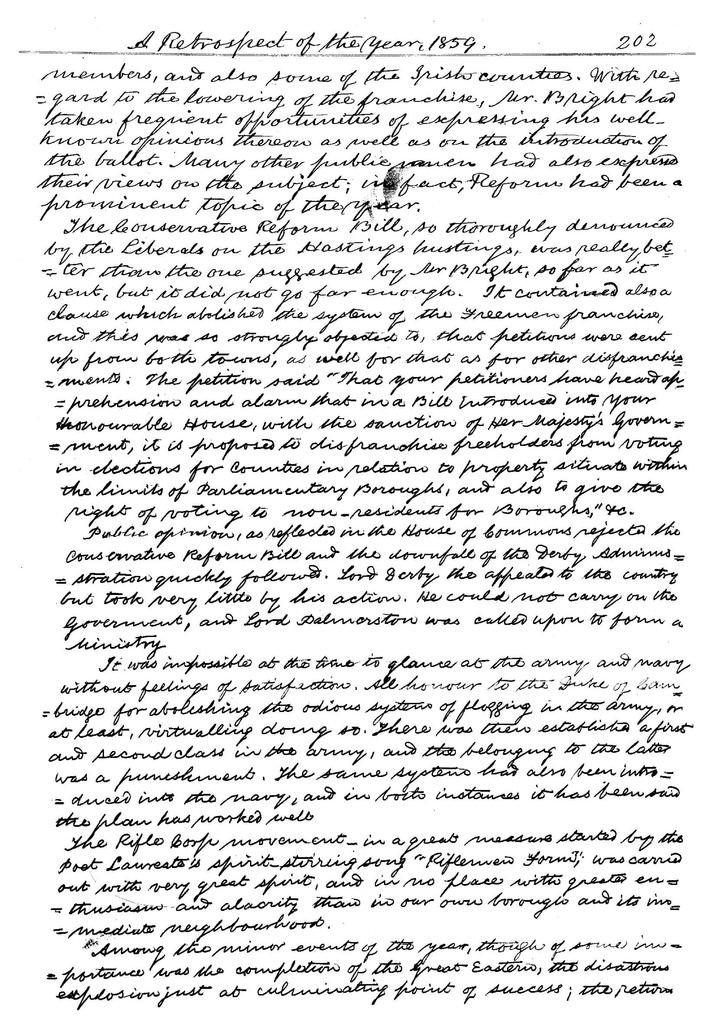 A Retrospect of the Year, 1859. 202
members, and also some of the Irish counties. With re=
=gard to the lowering of the franchise, Mr. Bright had
taken frequent opportunities of expressing his well-
known opinions thereon as well as on the introduction of
the ballot. Many other public men had also expressed
their views on the subject; in fact, Reform had been a
prominent topic of the year.
The Conservative Reform Bill, so thoroughly denounced
by the Liberals on the Hastings hustings, was really bet=
=ter than the one suggested by Mr Bright, so far as it
went, but it did not go far enough. It contained also a
clause which abolished the system of the Freemen franchise,
and this was so strongly objected to, that petitions were sent
up from both towns, as well for that as for other disfranchise
=ments. The petition said "That your petitioners have heard ap
=prehension and alarm that in a Bill Introduced into Your
Honourable House, with the sanction of Her Majesty's Govern=
=ment, it is proposed to disfranchise freeholders from voting
in elections for Counties in relation to property situate within
the limits of Parliamentary Boroughs, and also to give the
right of voting to non-residents for Boroughs," &c.
Public opinion, as reflected in the House of Commons rejected the
Conservative Reform Bill and the downfall of the Derby Adminis=
=stration quickly followed. Lord Derby the appealed to the country
but took very little by his action. He could not carry on the
Government, and Lord Palmerston was called upon to form a
Ministry
It was impossible at the time to glance at the army and navy
without feelings of satisfaction. All honour to the Duke of Cam
=bridge for abolishing the odious system of flogging in the army, or
at least, virtualling doing so. There was then established a first
and second class in the army, and the belonging to the latter
was a punishment. The same system had also been intro=
=duced into the navy, and in both instances it has been said
the plan has worked well
The Rifle Corp movement – in a great measure started by the
Poet Laureate's spirit-stirring song "Riflemen Form", was carried
out with very great spirit, and in no place with greater en=
=thusiasm and alacrity than in our own borough and its im=
=mediate neighbourhood.
Among the minor events of the year, though of some im=
=portance was the completion of the Great Eastern, the disastrous
explosion just at culminating point of success; the return